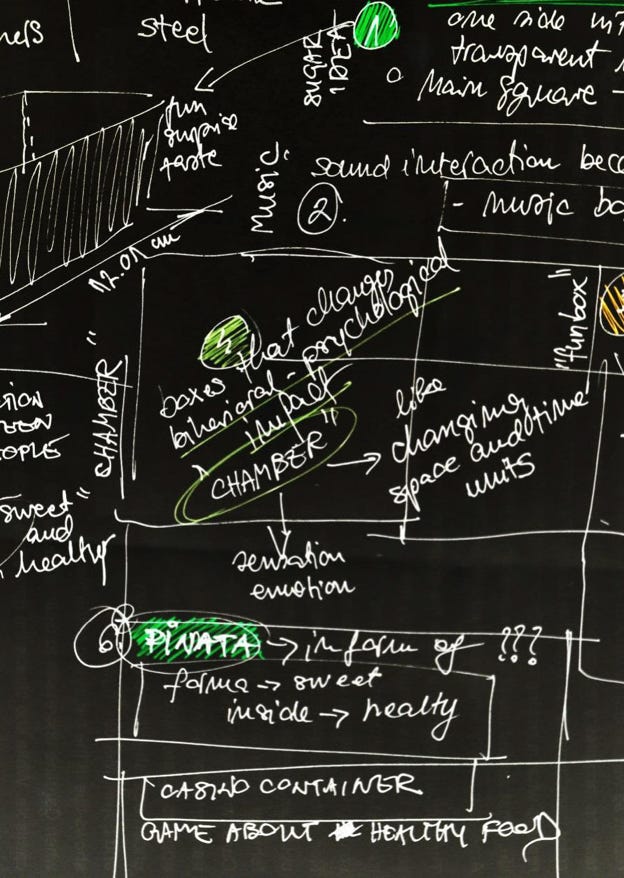 steel
SUGAR
IDEA
1
one side
transparent
Main Square -
fun
surprise
taste
MUSIC
2.
sound interaction
- music
12.01 cm
boxes that changes
bihevioral - psychological
impact
"CHAMBER"
→ like
changing
space and time
units
"CHAMBER"
"funbox"
OPLE
sweet"
and
healthy
sensation
emotion
6 PINATA → in form of ???
forma → sweet
inside → healty
CASINO CONTAINER
GAME ABOUT HEALTHY FOOD